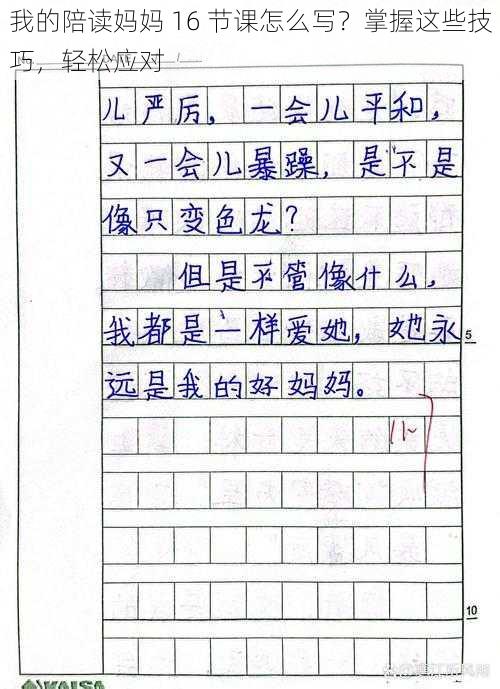 我的陪读妈妈 16 节课怎么写？掌握这些技
巧，轻松应对
儿严厉，一会儿平和，
又一会儿暴躁，是不是
像只变色龙？
但是不管像什么，
我都是一样爱她，她永
5
远是我的好妈妈。
10
KAISA